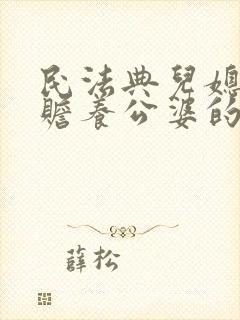 民法典兒媳
贍養公婆的
薛松